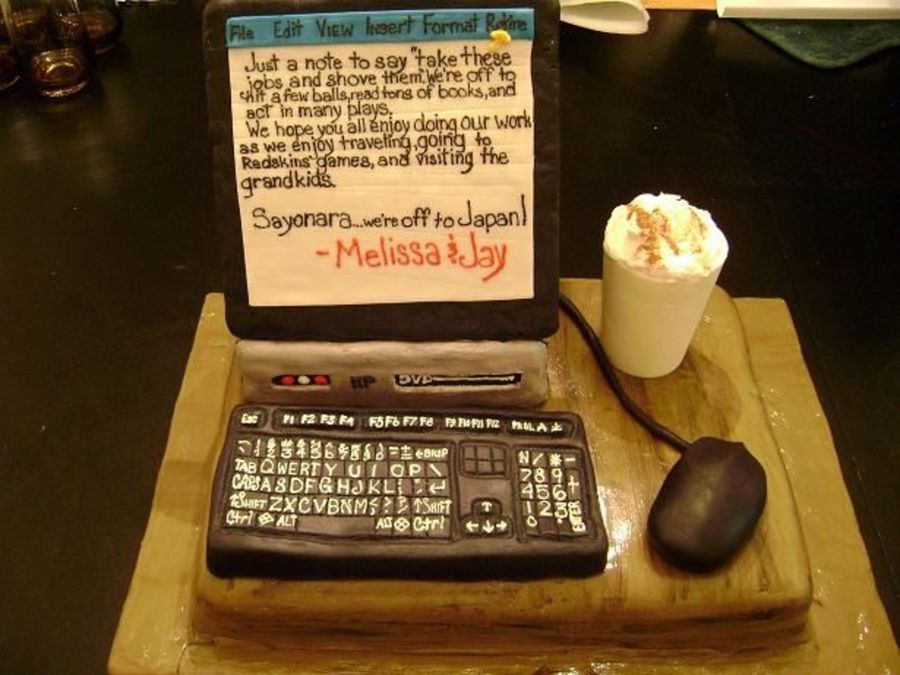 File Edit View Insert Format Retire
Just a note to say "take these
jobs and shove them". We're off to
hit a few balls, read tons of books, and
act in many plays.
We hope you all enjoy doing our work
as we enjoy traveling, going to
Redskins games, and visiting the
grandkids.
Sayonara...we're off to Japan!
-Melissa & Jay
HP DVD
Esc F1 F2 F3 F4 F5 F6 F7 F8 F9 F10 F11 F12
BKSP
TAB Q W E R T Y U I O P \
CAPS A S D F G H J K L ; " ↵
↑SHIFT Z X C V B N M ↑SHIFT
Ctrl ALT ALT Ctrl
↑
← ↓ →
N / * -
7 8 9 +
4 5 6
1 2 3 ENTER
0 .